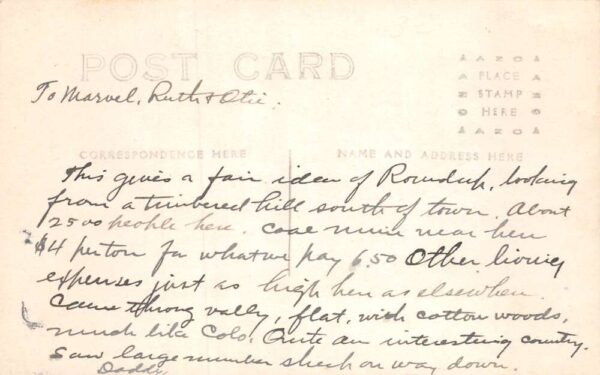 POST CARD
AZO
PLACE
STAMP
HERE
AZO
To Marvel, Ruth & Otie.
CORRESPONDENCE HERE
NAME AND ADDRESS HERE
This gives a fair idea of Roundup, looking
from a timbered hill south of town. About
2500 people here. Coal mine near here
$4 per ton for what we pay 6.50 Other living
expenses just as high here as elsewhere.
Came throug vally, flat, with cotton woods,
much like Colo. Quite an interesting country.
Saw large number sheek on way down.
Daddy